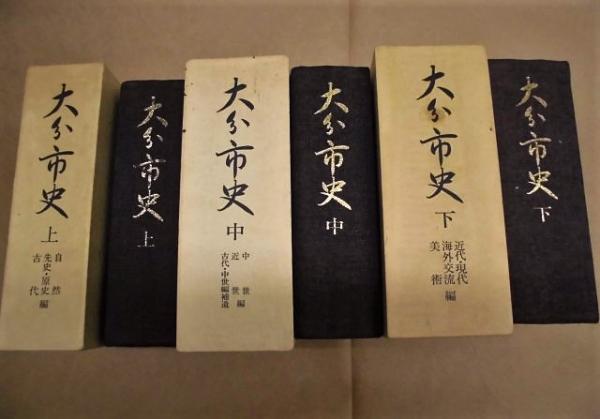 大分市史
上
自然
先史・原史編
古代
大分市史
上
大分市史
中
中世編
近世
古代・中世編補遺
大分市史
中
大分市史
下
近代・現代
海外交流編
美術
大分市史
下